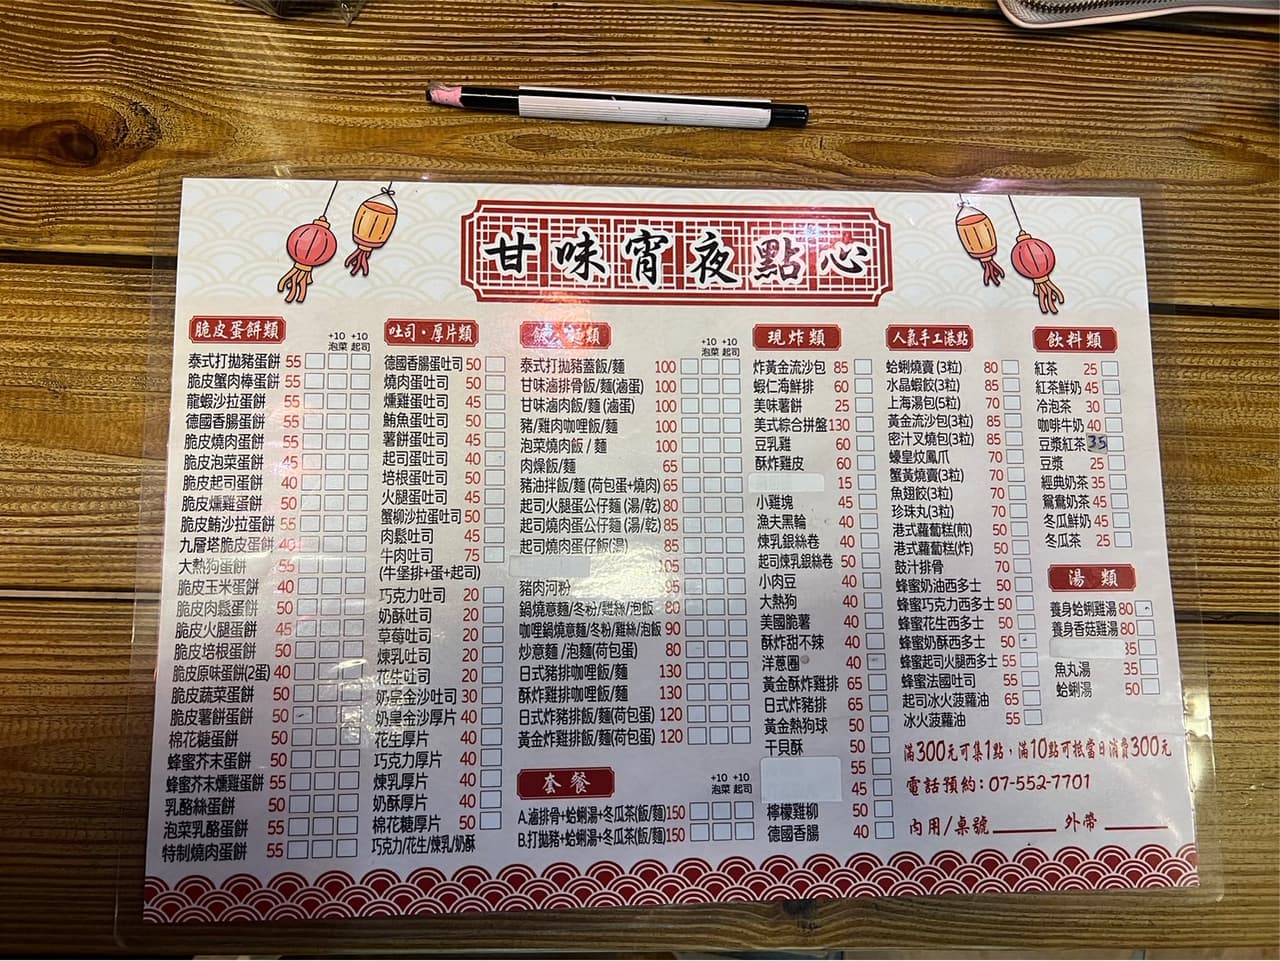 甘味宵夜點心
脆皮蛋餅類
+10 +10
泡菜 起司
泰式打拋豬蛋餅 55
脆皮蟹肉棒蛋餅 50
龍蝦沙拉蛋餅 55
德國香腸蛋餅 55
脆皮燒肉蛋餅 55
脆皮泡菜蛋餅 45
脆皮起司蛋餅 40
脆皮燻雞蛋餅 50
脆皮鮪沙拉蛋餅 55
九層塔脆皮蛋餅 40
大熱狗蛋餅 55
脆皮玉米蛋餅 40
脆皮肉鬆蛋餅 50
脆皮火腿蛋餅 45
脆皮培根蛋餅 50
脆皮原味蛋餅(2蛋) 40
脆皮蔬菜蛋餅 50
脆皮薯餅蛋餅 50
棉花糖蛋餅 50
蜂蜜芥末蛋餅 50
蜂蜜芥末燻雞蛋餅 55
乳酪絲蛋餅 50
泡菜乳酪蛋餅 55
特制燒肉蛋餅 55
吐司·厚片類
德國香腸蛋吐司 50
燒肉蛋吐司 50
燻雞蛋吐司 45
鮪魚蛋吐司 50
薯餅蛋吐司 45
起司蛋吐司 40
培根蛋吐司 50
火腿蛋吐司 45
蟹柳沙拉蛋吐司 50
肉鬆吐司 45
牛肉吐司 75
(牛堡排+蛋+起司)
巧克力吐司 20
奶酥吐司 20
草莓吐司 20
煉乳吐司 20
花生吐司 20
奶皇金沙吐司 30
奶皇金沙厚片 40
花生厚片 40
巧克力厚片 40
煉乳厚片 40
奶酥厚片 40
棉花糖厚片 50
巧克力/花生/煉乳/奶酥
類
+10 +10
泡菜 起司
泰式打拋豬蓋飯/麵 100
甘味滷排骨飯/麵(滷蛋) 100
甘味滷肉飯/麵 (滷蛋) 100
豬/雞肉咖哩飯/麵 100
泡菜燒肉飯 / 麵 100
肉燥飯/麵 65
豬油拌飯/麵(荷包蛋+燒肉) 65
起司火腿蛋公仔麵 (湯/乾) 80
起司燒肉蛋公仔麵 (湯/乾) 85
起司燒肉蛋仔飯(湯) 85
105
豬肉河粉 95
鍋燒意麵/冬粉/雞絲/泡飯 80
咖哩鍋燒意麵/冬粉/雞絲/泡飯 90
炒意麵 /泡麵(荷包蛋) 80
日式豬排咖哩飯/麵 130
酥炸雞排咖哩飯/麵 130
日式炸豬排飯/麵(荷包蛋) 120
黃金炸雞排飯/麵(荷包蛋) 120
套餐
+10 +10
泡菜 起司
A.滷排骨+蛤蜊湯+冬瓜茶(飯/麵)150
B.打拋豬+蛤蜊湯+冬瓜茶(飯/麵)150
現炸類
炸黃金流沙包 85
蝦仁海鮮排 60
美味薯餅 25
美式綜合拼盤 130
豆乳雞 60
酥炸雞皮 60
15
小雞塊 45
漁夫黑輪 40
煉乳銀絲卷 40
起司煉乳銀絲卷 50
小肉豆 40
大熱狗 40
美國脆薯 40
酥炸甜不辣 40
洋蔥圈 40
黃金酥炸雞排 65
日式炸豬排 65
黃金熱狗球 50
干貝酥 50
55
45
檸檬雞柳 50
德國香腸 40
人氣手工港點
蛤蜊燒賣 (3粒) 80
水晶蝦餃(3粒) 85
上海湯包(5粒) 70
黃金流沙包(3粒) 85
密汁叉燒包(3粒) 85
蠔皇炆鳳爪 70
蟹黃燒賣(3粒) 70
魚翅餃(3粒) 70
珍珠丸(3粒) 70
港式蘿蔔糕(煎) 50
港式蘿蔔糕(炸) 50
豉汁排骨 70
蜂蜜奶油西多士 50
蜂蜜巧克力西多士 50
蜂蜜花生西多士 50
蜂蜜奶酥西多士 50
蜂蜜起司火腿西多士 55
蜂蜜法國吐司 55
起司冰火菠蘿油 65
冰火菠蘿油 55
飲料類
紅茶 25
紅茶鮮奶 45
冷泡茶 30
咖啡牛奶 40
豆漿紅茶 35
豆漿 25
經典奶茶 35
鴛鴦奶茶 45
冬瓜鮮奶 45
冬瓜茶 25
湯 類
養身蛤蜊雞湯 80
養身香菇雞湯 80
35
魚丸湯 35
蛤蜊湯 50
滿300元可集1點，滿10點可抵當日消費300元
電話預約: 07-552-7701
內用/桌號 外帶